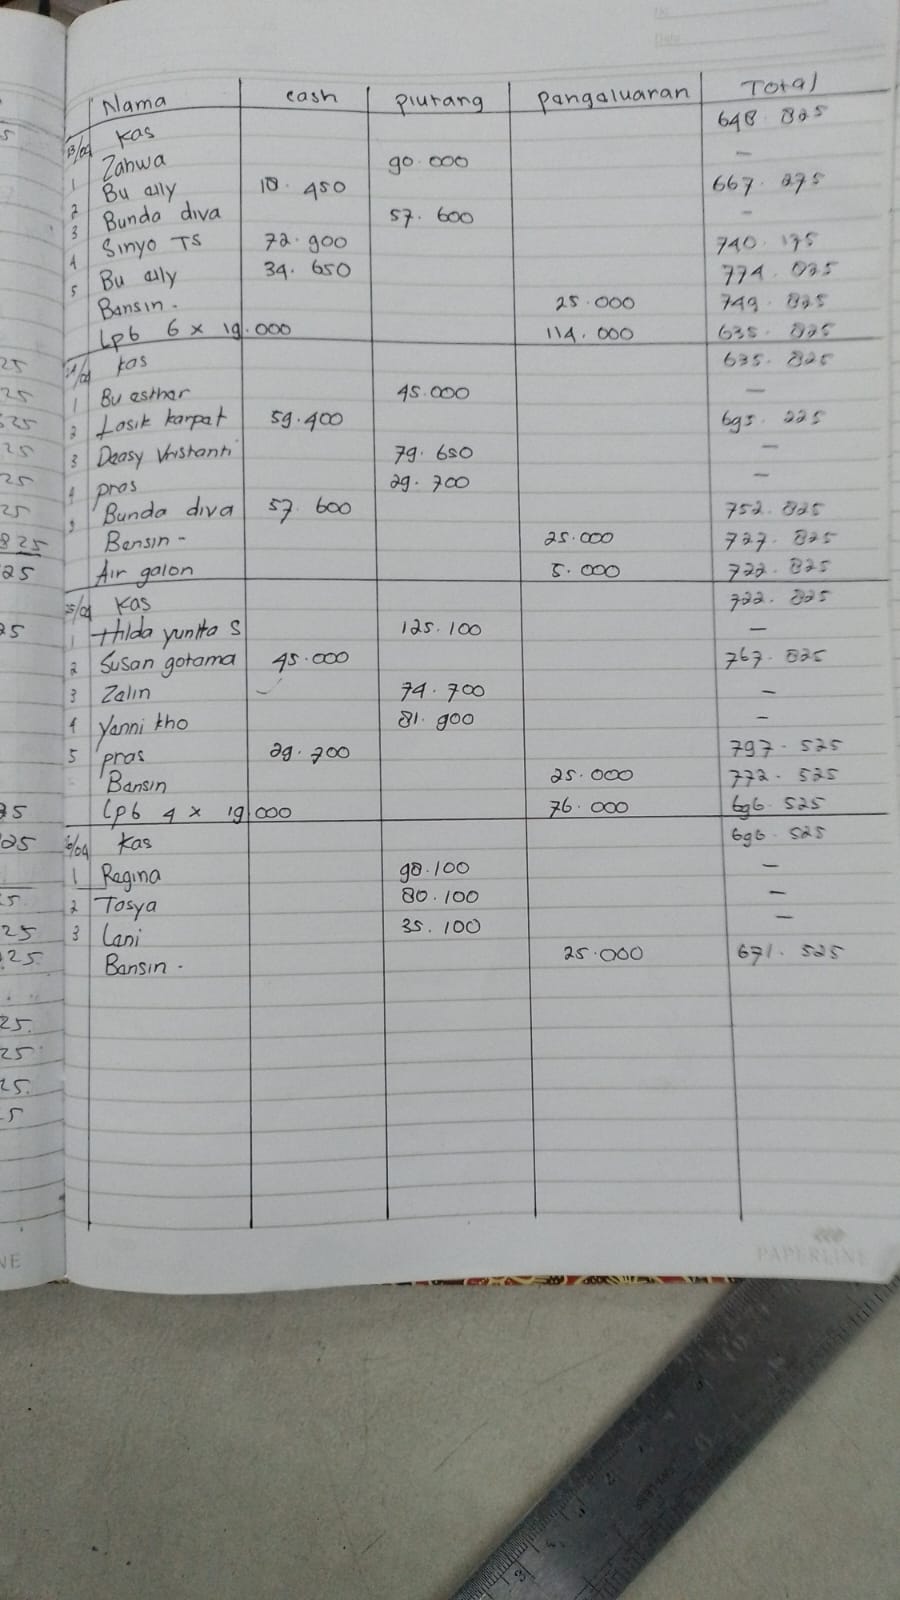 Nama cash piutang pangaluaran Total
23/09 kas 648.825
1 Zahwa 90.000 —
2 Bu elly 18.450 667.275
3 Bunda diva 57.600 -
4 Sinyo TS 72.900 740.175
5 Bu elly 34.650 774.825
Bansin. 25.000 749.825
Lpb 6 x 19.000 114.000 635.825
24/09 kas 635.825
1 Bu esther 45.000 —
2 Losik karpat 59.400 695.225
3 Deasy Vristanti 79.650 —
4 pras 29.700 —
5 Bunda diva 57.600 752.825
Bensin - 25.000 727.825
Air galon 5.000 722.825
25/09 kas 722.825
1 Hilda yunita S 125.100 —
2 Susan gotama 45.000 767.825
3 Zalin 74.700 —
4 Yanni kho 81.900 —
5 pras 29.700 797.525
Bansin 25.000 772.525
Lpb 4 x 19.000 76.000 696.525
26/09 kas 696.525
1 Regina 98.100 —
2 Tasya 80.100 —
3 Lani 35.100 —
Bansin. 25.000 671.525
PAPERLINE